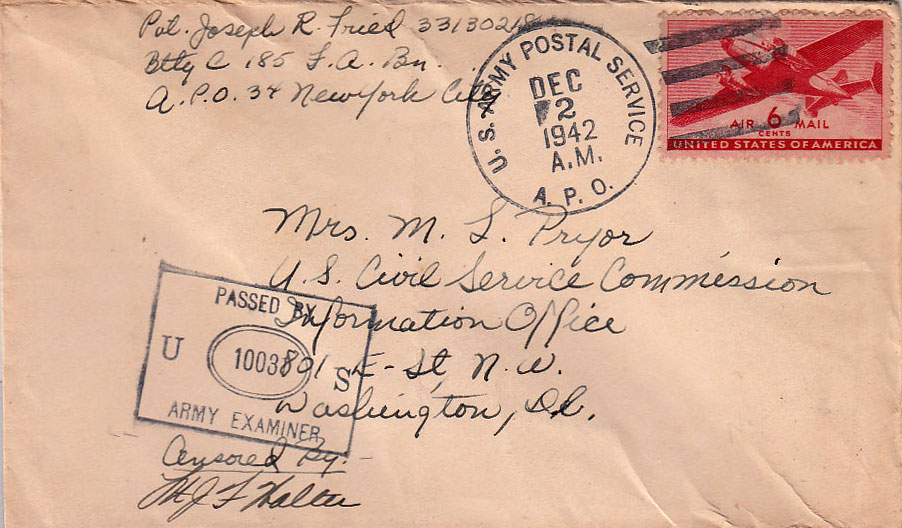 Pvt. Joseph R. Fried 33130218
Btty C 185 F.A. Bn.
A.P.O. 34 New York City
U.S. ARMY POSTAL SERVICE
DEC
2
1942
A.M.
A.P.O.
AIR 6 MAIL
CENTS
UNITED STATES OF AMERICA
Mrs. M. L. Pryor
U.S. Civil Service Commission
Information Office
801 E-St, N.W.
Washington, D.C.
PASSED BY
U 10037 S
ARMY EXAMINER
Censored By:-